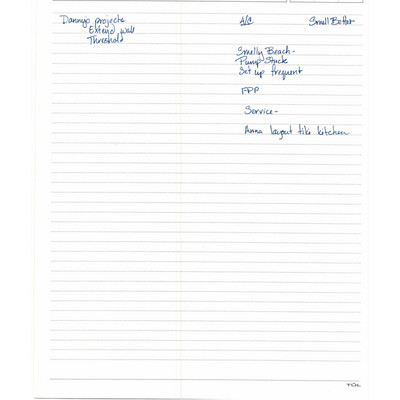 Dannyo projects
Extend wall
Threshold
A/C
Smell Better
Smelly Beach-
Pump Stuck
Set up frequent
FPP
Service-
Anna layout tiki kitchen
TOL